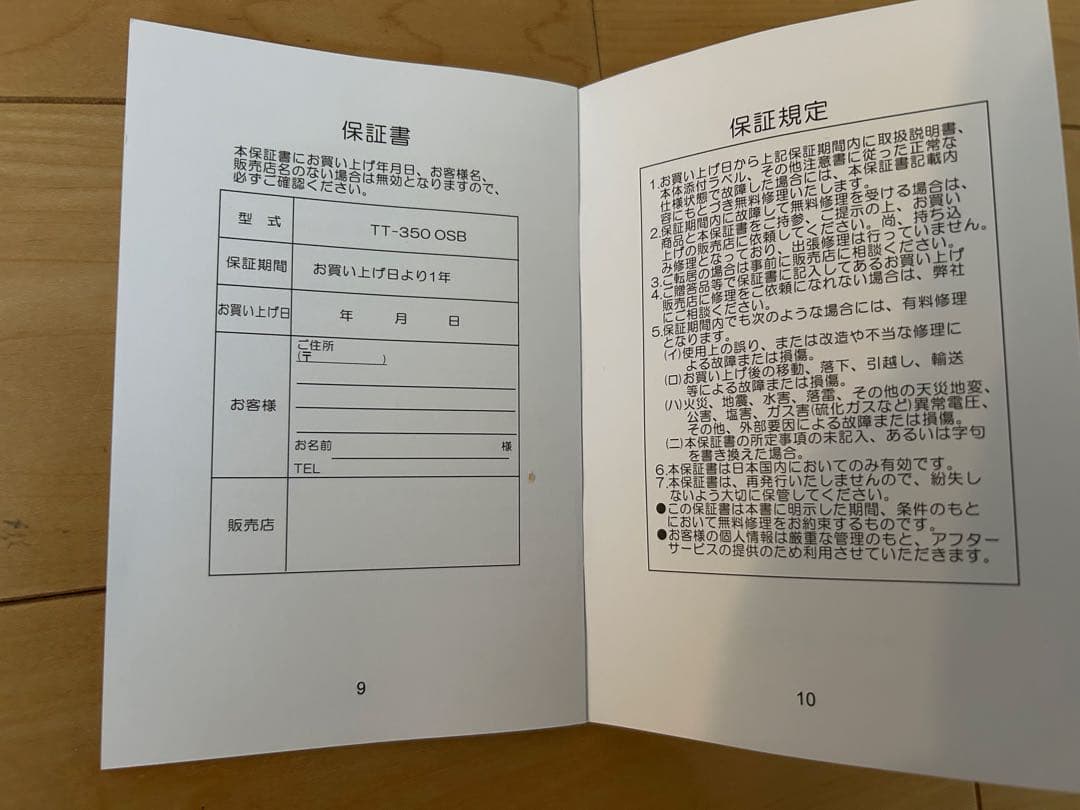 保証書
本保証書にお買い上げ年月日、お客様名、
販売店名のない場合は無効となりますので、
必ずご確認ください。
型 式 TT-350 OSB
保証期間 お買い上げ日より1年
お買い上げ日 年 月 日
ご住所
(〒 )
お客様
お名前 様
TEL
販売店
9
保証規定
1.お買い上げ日から上記保証期間内に取扱説明書、
本体添付ラベル、その他注意書に従った正常な
仕様状態で故障した場合には、本保証書記載内
容にもとづき無料修理いたします。
2.保証期間内に故障して無料修理を受ける場合は、
商品と本保証書をご持参、ご提示の上、お買い
上げの販売店に依頼してください。尚、持ち込
み修理となっており、出張修理は行っていません。
3.ご転居の場合は事前に販売店に相談ください。
4.ご贈答品等で保証書に記入してあるお買い上げ
販売店に修理をご依頼になれない場合は、弊社
にご相談ください。
5.保証期間内でも次のような場合には、有料修理
となります。
(イ)使用上の誤り、または改造や不当な修理に
よる故障または損傷。
(ロ)お買い上げ後の移動、落下、引越し、輸送
等による故障または損傷。
(ハ)火災、地震、水害、落雷、その他の天災地変、
公害、塩害、ガス害(硫化ガスなど)異常電圧、
その他、外部要因による故障または損傷。
(ニ)本保証書の所定事項の未記入、あるいは字句
を書き換えた場合。
6.本保証書は日本国内においてのみ有効です。
7.本保証書は、再発行いたしませんので、紛失し
ないよう大切に保管してください。
●この保証書は本書に明示した期間、条件のもと
において無料修理をお約束するものです。
●お客様の個人情報は厳重な管理のもと、アフター
サービスの提供のため利用させていただきます。
10